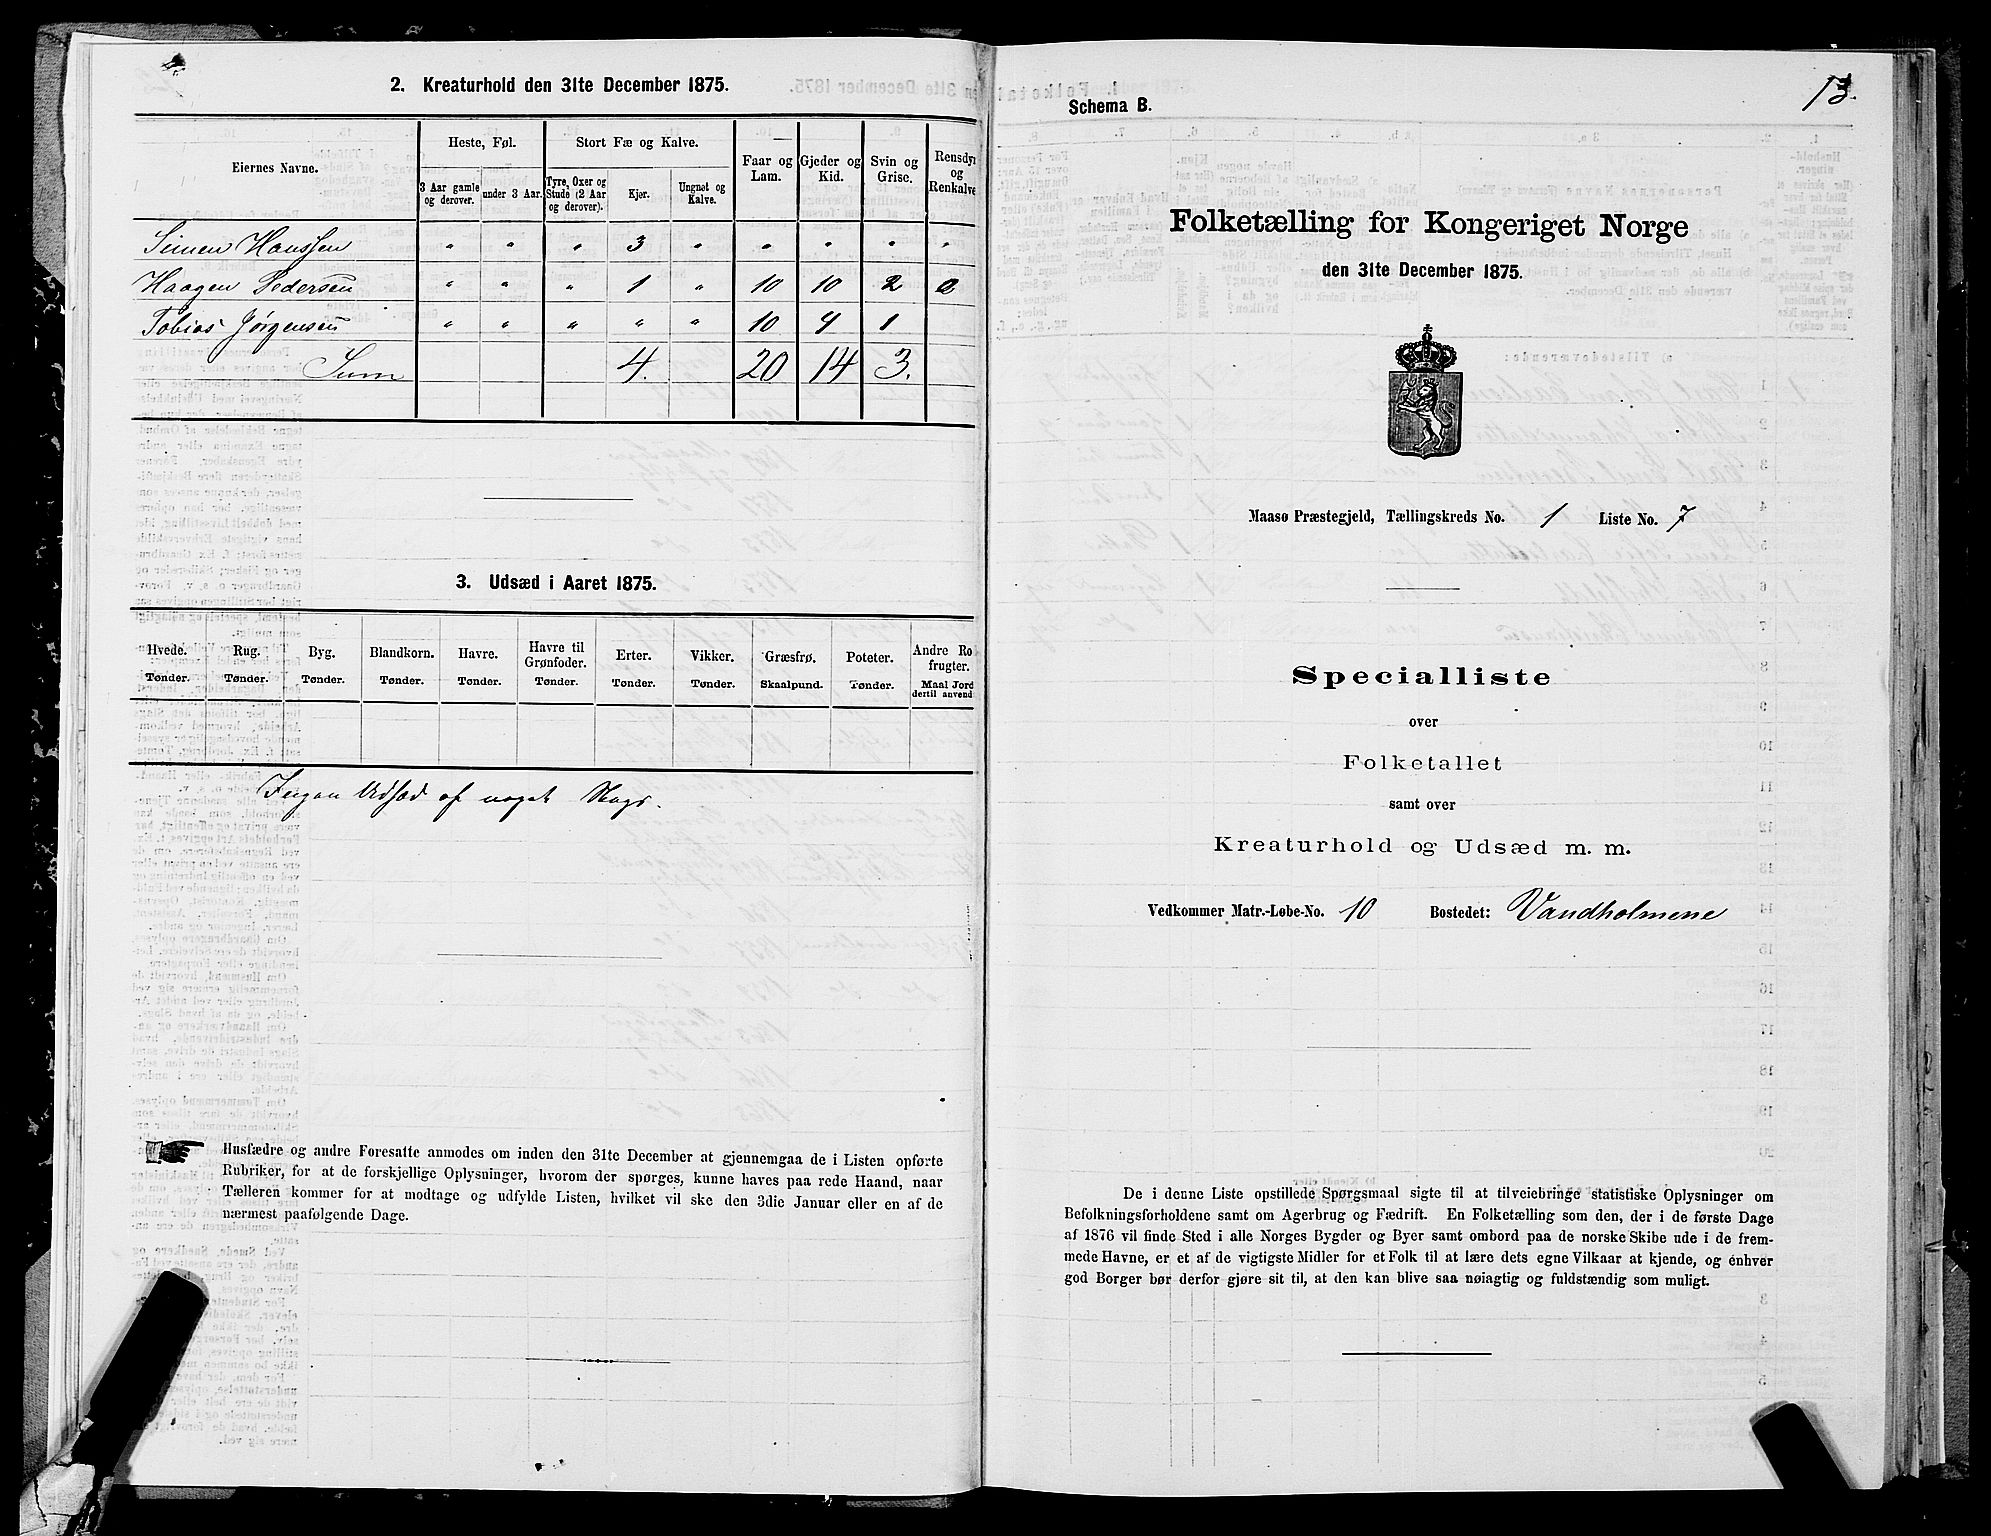 2. Kreaturhold den 31te December 1875.
Eiernes Navne. Heste, Føl. Stort Fæ og Kalve. Faar og Lam. Gjeder og Kid. Svin og Grise. Rensdyr og Renkalve
3 Aar gamle og derover. under 3 Aar. Tyre, Oxer og Stude (2 Aar og derover). Kjør. Ungnøt og Kalve.
Simen Hanssen " " " 3 " " " " "
Haagen Pedersen " " " 1 " 10 10 2 0
Tobias Jørgensen " " " " " 10 4 1
Sum 4. 20 14 3.
3. Udsæd i Aaret 1875.
Hvede. Rug. Byg. Blandkorn. Havre. Havre til Grønfoder. Erter. Vikker. Græsfrø. Poteter. Andre Ro frugter.
Tønder. Tønder. Tønder. Tønder. Tønder. Tønder. Tønder. Tønder. Skaalpund. Tønder. Maal Jord dertil anvend
Ingen Udsæd af noget Slags.
Husfædre og andre Foresatte anmodes om inden den 31te December at gjennemgaa de i Listen opførte
Rubriker, for at de forskjellige Oplysninger, hvorom der spørges, kunne haves paa rede Haand, naar
Tælleren kommer for at modtage og udfylde Listen, hvilket vil ske den 3die Januar eller en af de
nærmest paafølgende Dage.
13.
Schema B.
Folketælling for Kongeriget Norge
den 31te December 1875.
Maasø Præstegjeld, Tællingskreds No. 1 Liste No. 7
Specialliste
over
Folketallet
samt over
Kreaturhold og Udsæd m. m.
Vedkommer Matr.-Løbe-No. 10 Bostedet: Vandholmene
De i denne Liste opstillede Spørgsmaal sigte til at tilveiebringe statistiske Oplysninger om
Befolkningsforholdene samt om Agerbrug og Fædrift. En Folketælling som den, der i de første Dage
af 1876 vil finde Sted i alle Norges Bygder og Byer samt ombord paa de norske Skibe ude i de frem-
mede Havne, er et af de vigtigste Midler for et Folk til at lære dets egne Vilkaar at kjende, og enhver
god Borger bør derfor gjøre sit til, at den kan blive saa nøiagtig og fuldstændig som muligt.